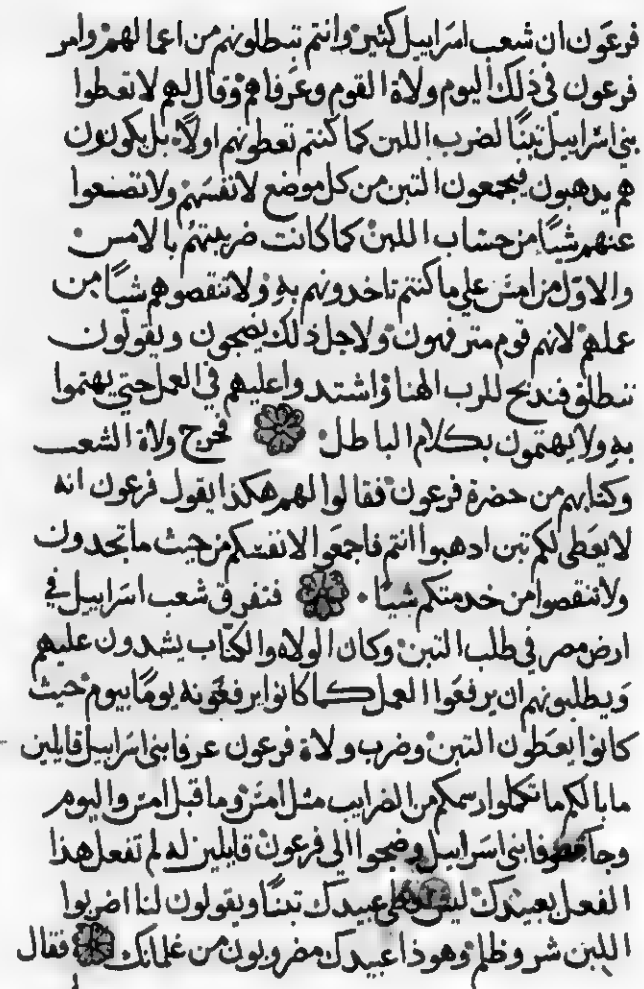 فرعون ان شعب اسراييل كثير وانتم تبطلونهم من اعمالهم وامر
فرعون في ذلك اليوم ولاة القوم وعرفاهم وقال لهم لا تعطوا
بني اسراييل تبنًا لضرب اللبن كما كنتم تعطونهم اولًا بل يكونون
هم يدهبون فيجمعون التبن من كل موضع لانفسهم ولا تضعوا
عنهم شيًا من حساب اللبن كما كانت ضريبتهم بالامس
والاول من امس علي ما كنتم تاخدونهم به ولا تنقصوهم شيًا من
عملهم لانهم قوم مترفهون ولاجل ذلك يضجون ويقولون
ننطلق فندبح للرب الهنا فاشتدوا عليهم في العمل حتي يهتموا
به ولا يهتمون بكلام الباطل فخرج ولاة الشعب
وكتابهم من حضرة فرعون فقالوا لهم هكذا يقول فرعون انه
لا يعطى لكم تبن ادهبوا انتم فاجمعوا لانفسكم من حيث ما تجدون
ولا تنقصوا من خدمتكم شيًا فتفرق شعب اسراييل في
ارض مصر في طلب التبن وكان الولاه والكتاب يشدون عليهم
ويطلبونهم ان يرفعوا العمل كما كانوا يرفعونه يومًا بيوم حيث
كانوا يعطون التبن وضرب ولاة فرعون عرفا بني اسراييل قايلين
ما بالكم ما تكملوا رسمكم من الضرايب مثل امس وما قبل امس واليوم
وجا عرفا بني اسراييل وضجوا الي فرعون قايلين له لم تفعل هذا
الفعل بعبيدك ليس يعطى عبيدك تبنًا ويقولون لنا اضربوا
اللبن شر وظلم وهوذا عبيدك مضروبون من غلمانك فقال